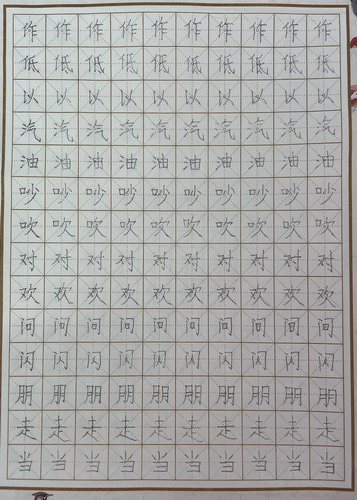 作作作作作作作作作作
低低低低低低低低低低
以以以以以以以以以以
汽汽汽汽汽汽汽汽汽汽
油油油油油油油油油油
吵吵吵吵吵吵吵吵吵吵
吹吹吹吹吹吹吹吹吹吹
对对对对对对对对对对
欢欢欢欢欢欢欢欢欢欢
问问问问问问问问间问
闪闪闪闪闪闪闪闪闪闪
朋朋朋朋朋朋朋朋朋朋
走走走走走走走走走走
当当当当当当当当当当